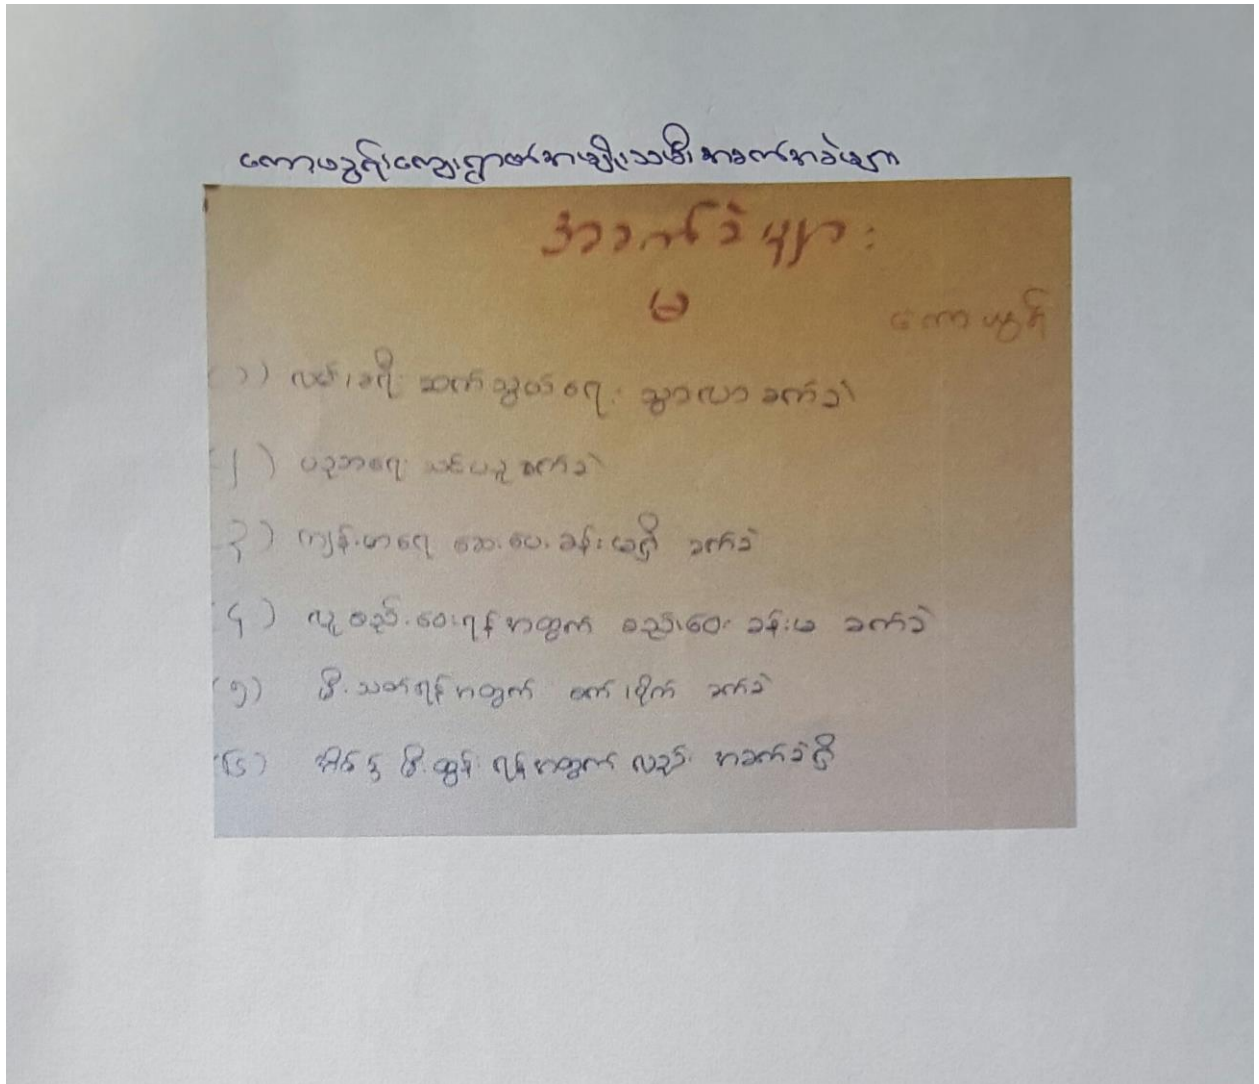 ကော့ပခွန်ကျေးရွာမှအမျိုးသမီးအခက်အခဲများ
အခက်ခဲများ
မ
ကော့ပခွန်
(၁) လမ်းခရီး ဆက်သွယ်ရေး သွားလာခက်ခဲ
(၂) ပညာရေး သင်ယူခက်ခဲ
(၃) ကျန်းမာရေး ဆေးပေးခန်းမရှိ ခက်ခဲ
(၄) လူစည်းဝေးရန်အတွက် စည်းဝေးခန်းမ ခက်ခဲ
(၅) မီးသတ်ရန်အတွက် ခက်ခဲ
(၆) အိမ်၌ မီးထွန်းရန်အတွက်လည်း အခက်ခဲရှိ